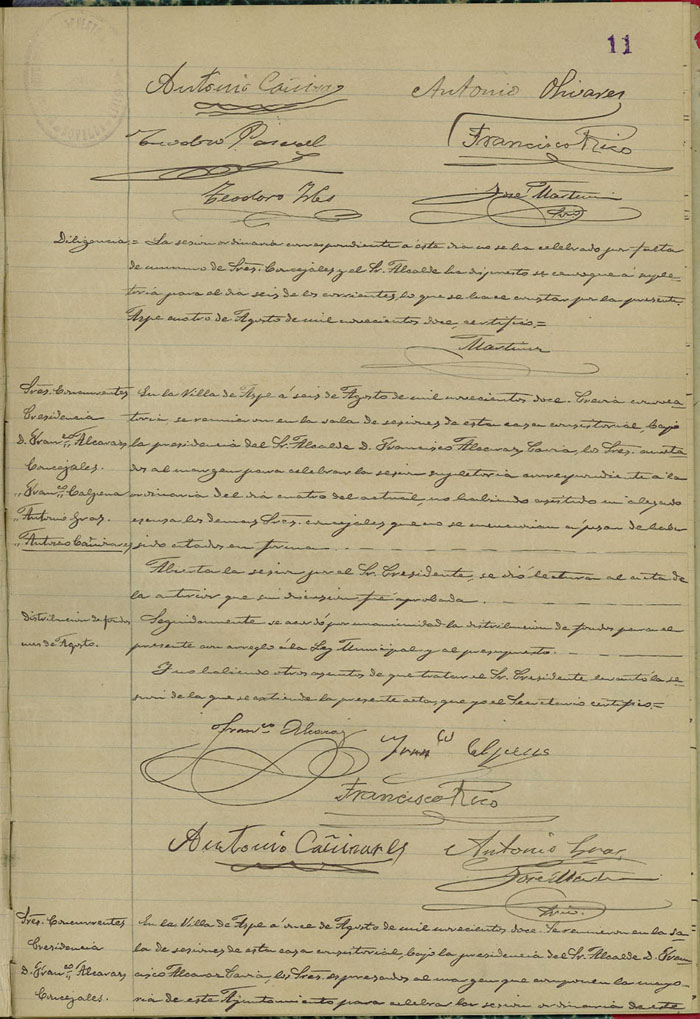 11
Antonio Cañizares
Antonio Olivares
Teodoro Pascual
Francisco Rico
Teodoro
José Martinez
Srio
Diligencia,= La sesion ordinaria correspondiente á este dia no se ha celebrado por falta
de numero de Sres. Concejales y el Sr. Alcalde ha dispuesto se convoque á suple-
toria para el dia seis de los corrientes, lo que se hace constar por la presente.
Aspe cuatro de Agosto de mil novecientos doce, certifico,=
Martinez
Sres. Concurrentes
Presidencia
D. Franco. Alcaraz
Concejales.
" Franco. Calpena
" Antonio Gras.
" Antonio Cañizares
En la Villa de Aspe á seis de Agosto de mil novecientos doce. Previa convoca-
toria se reunieron en la sala de sesiones de esta casa consistorial, bajo
la presidencia del Sr. Alcalde D. Francisco Alcaraz, los Sres. anota-
dos al margen para celebrar la sesion supletoria correspondiente á la
ordinaria del dia cuatro del actual, no habiendo asistido ni alegado
escusa los demas Sres. concejales que no se mencionan á pesar de haber
sido citados en forma.
Abierta la sesion por el Sr. Presidente, se dió lectura al acta de
la anterior que sin discusion fué aprobada.
Distribucion de fondos
mes de Agosto.
Seguidamente se acordó por unanimidad la distribucion de fondos para el
presente con arreglo á la Ley Municipal y al presupuesto.
Y no habiendo otros asuntos de que tratar el Sr. Presidente levantó la se-
sion de la que se extiende la presente acta, que yo el Secretario certifico,=
Franco Alcaraz
Franco Calpena
Francisco Rico
Antonio Cañizares
Antonio Gras
José Martinez
Srio.
Sres. Concurrentes
Presidencia
D. Franco. Alcaraz
Concejales.
En la Villa de Aspe á once de Agosto de mil novecientos doce. Se reunieron en la sa-
la de sesiones de esta casa consistorial, bajo la presidencia del Sr. Alcalde D. Fran-
cisco Alcaraz, los Sres. espresados al margen que componen la mayo-
ria de este Ayuntamiento para celebrar la sesion ordinaria de este